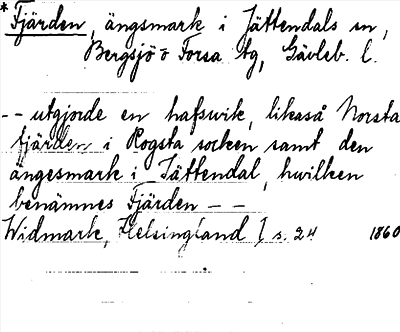 * Fjärden, ängsmark i Jättendals sn,
Bergsjö o Forsa tg, Gävleb. l.
-- utgjorde en hafsvik, likaså Norsta
fjärden i Rogsta socken samt den
ängesmark i Jättendal, hwilken
benämnes Fjärden --
Widmark, Helsingland I s. 24 1860